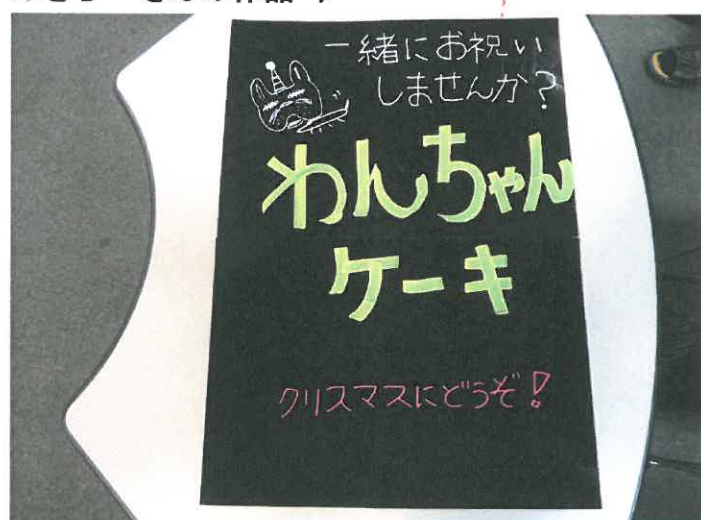 一緒にお祝い
しませんか?
わんちゃん
ケーキ
クリスマスにどうぞ!